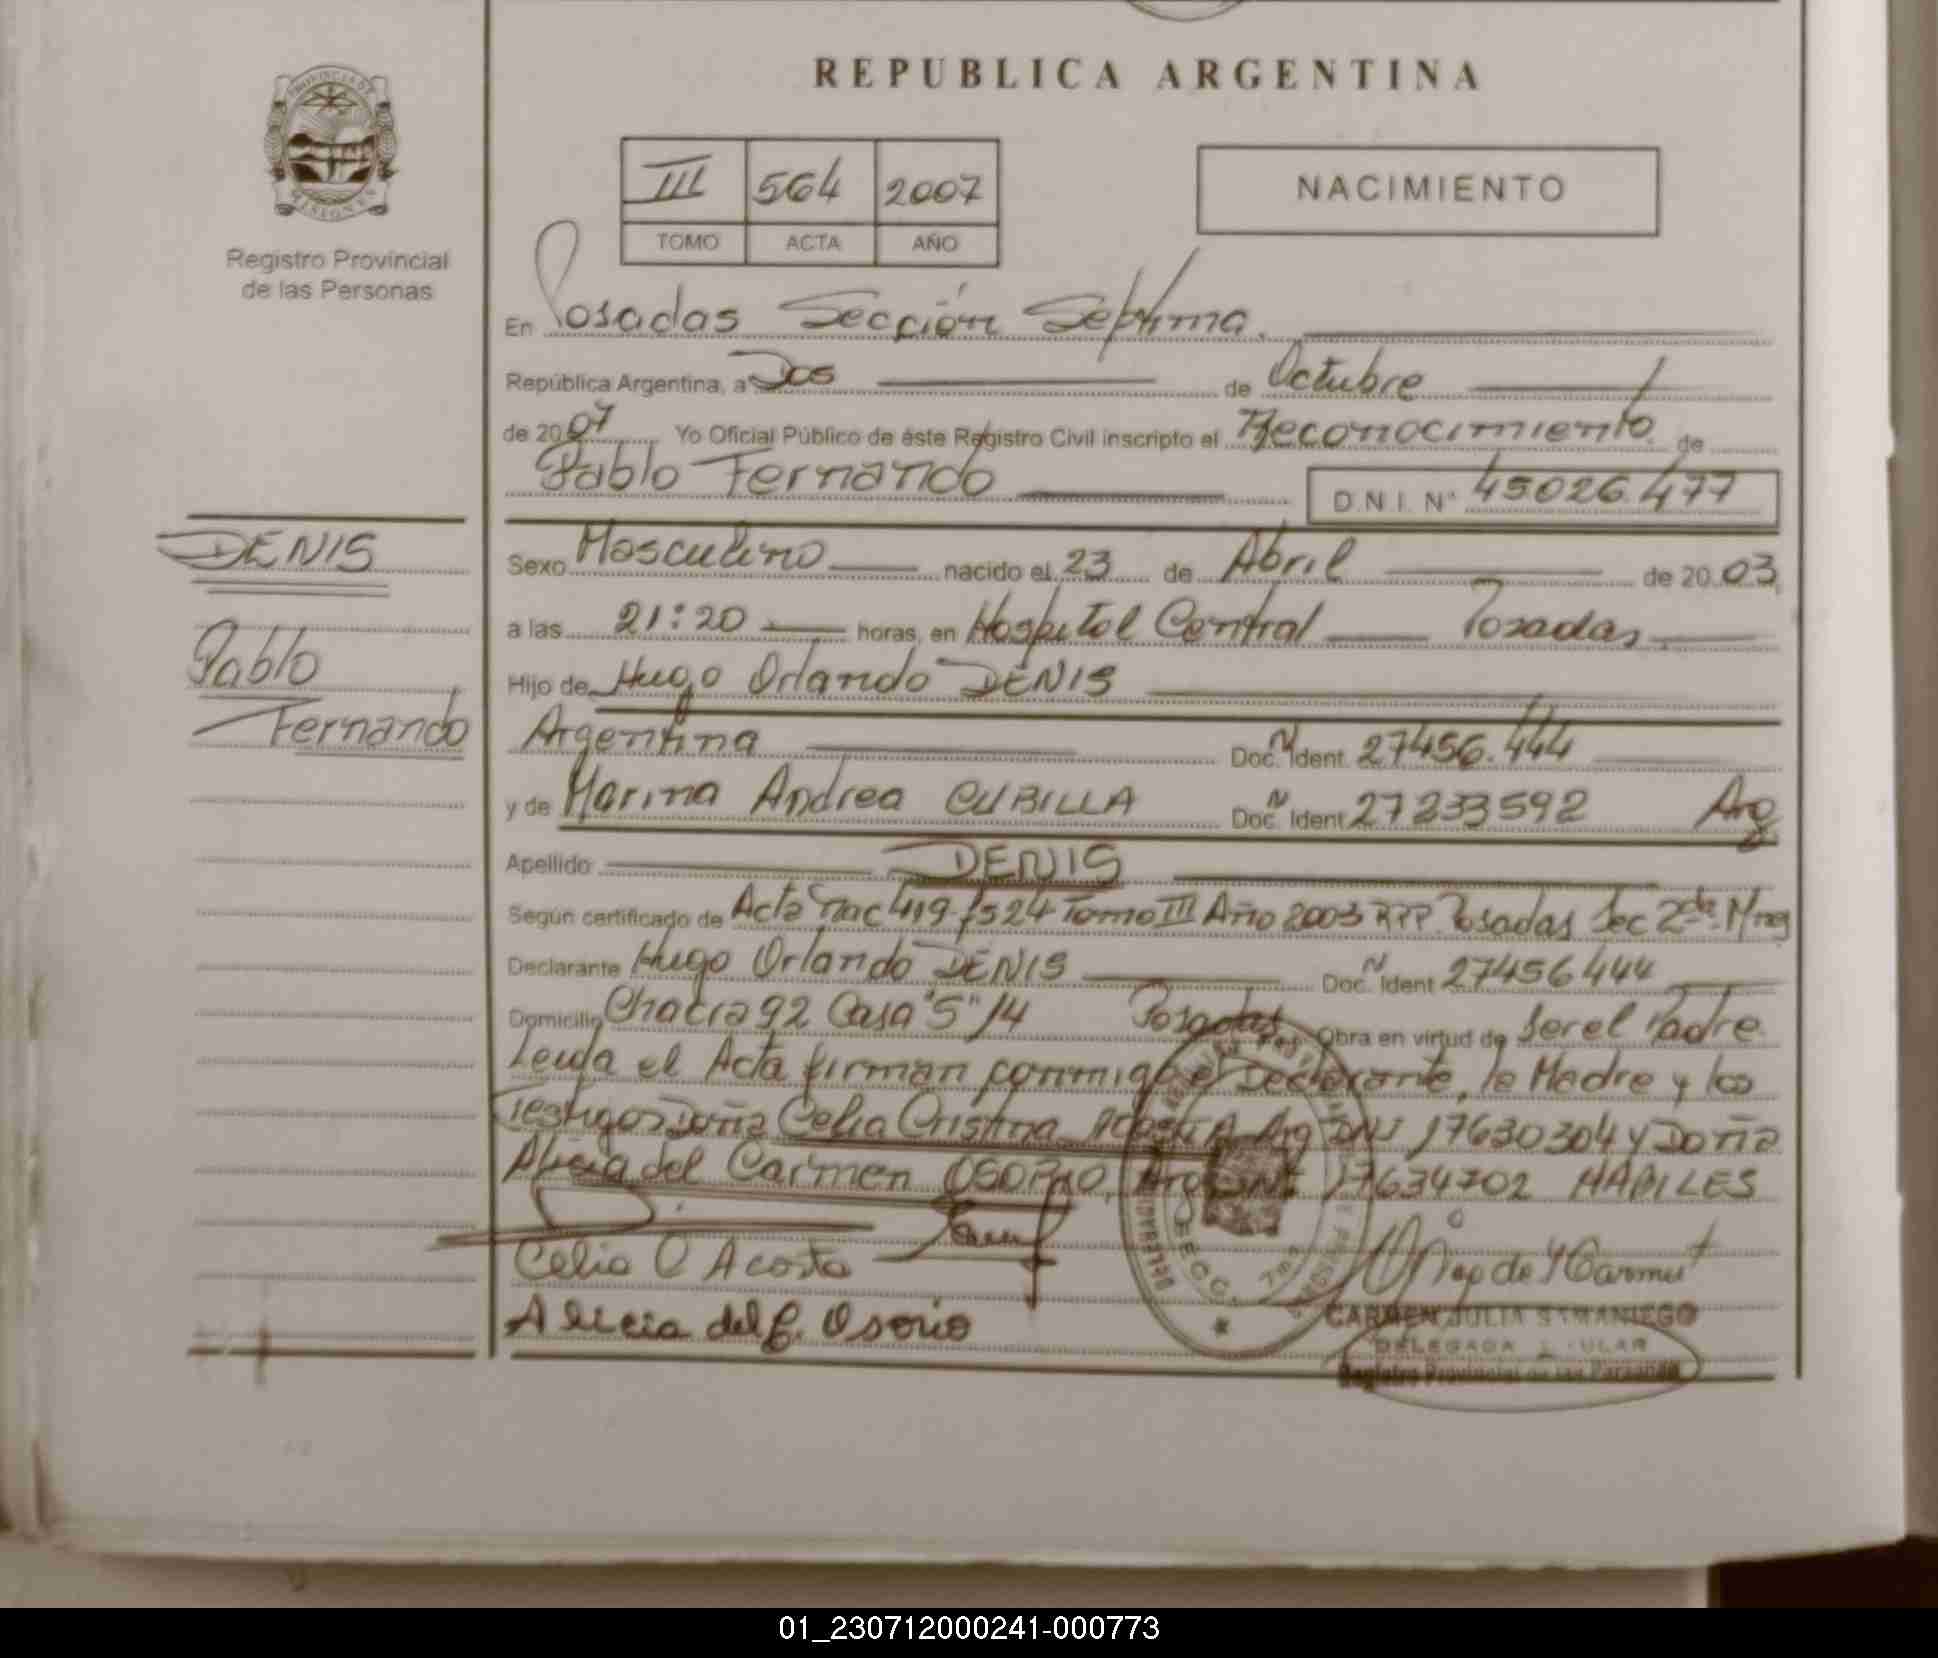 REPUBLICA ARGENTINA
PROVINCIA DE
MISIONES
Registro Provincial
de las Personas
III 564 2007
TOMO ACTA AÑO
NACIMIENTO
En Posadas Sección Septima.
República Argentina, a Dos de Octubre
de 2007 Yo Oficial Público de éste Registro Civil inscripto el Reconocimiento de
Pablo Fernando D.N.I. Nº 45026.477
DENIS
Pablo
Fernando
Sexo Masculino nacido el 23 de Abril de 2003
a las 21:20 horas, en Hospital Central Posadas,
Hijo de Hugo Orlando DENIS
Argentina Doc. N Ident. 27456.444
y de Marina Andrea CUBILLA Doc. N Ident 27233592 Arg
Apellido DENIS
Según certificado de Acta Nac 419 /524 Tomo III Año 2003 RPP. Posadas Sec 2da. Mnes
Declarante Hugo Orlando DENIS Doc. N Ident 27456444
Domicilio Chacra 92 Casa "5" 14 Posadas Obra en virtud de ser el Padre
Leida el Acta firman conmigo el Declarante, la Madre y los
Testigos Doña Celia Cristina ACOSTA Arg DNI 17630304 y Doña
Alicia del Carmen OSORIO, Arg DNI 17634702 HABILES
Celia C Acosta
Alicia del C. Osorio
SECC. 7ma
CARMEN JULIA SAMANIEGO
DELEGADA
Registro Provincial de las Personas
01_230712000241-000773